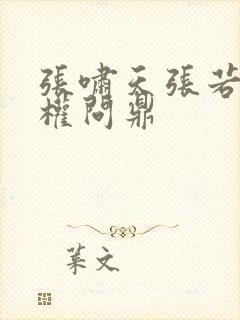 張嘯天張若
權問鼎
葉文